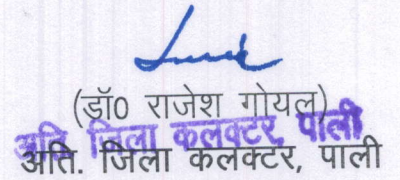 (डॉ0 राजेश गोयल)
अति जिला कलक्टर, पाली
अति. जिला कलक्टर, पाली